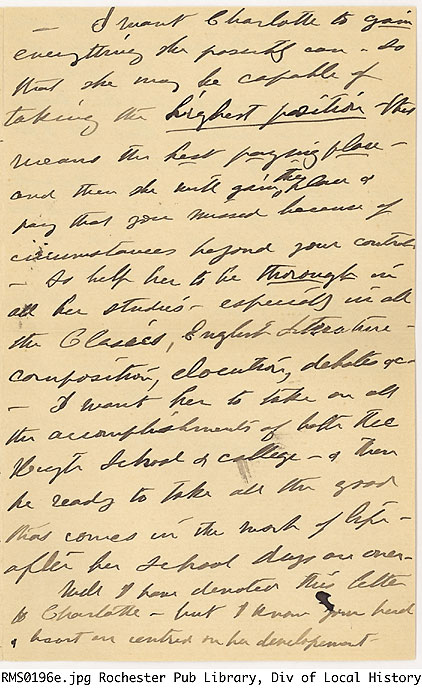 — I want Charlotte to gain
everything she possibly can - so
that she may be capable of
taking the highest position - this
means the best paying place -
and then she will gain the place &
pay that you missed because of
circumstances beyond your control
- So help her to be thorough in
all her studies - especially in all
the Classics, English Literature -
composition, elocution, debates &c -
- I want her to take on all
the accomplishments of both the
High School & college - & then
be ready to take all the good
that comes in the work of life -
after her school days are over -
Well I have devoted this letter
to Charlotte - but I know your head
& heart are centred on her development
RMS0196e.jpg Rochester Pub Library, Div of Local History